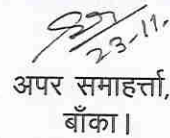 23-11-
अपर समाहर्त्ता,
बाँका।